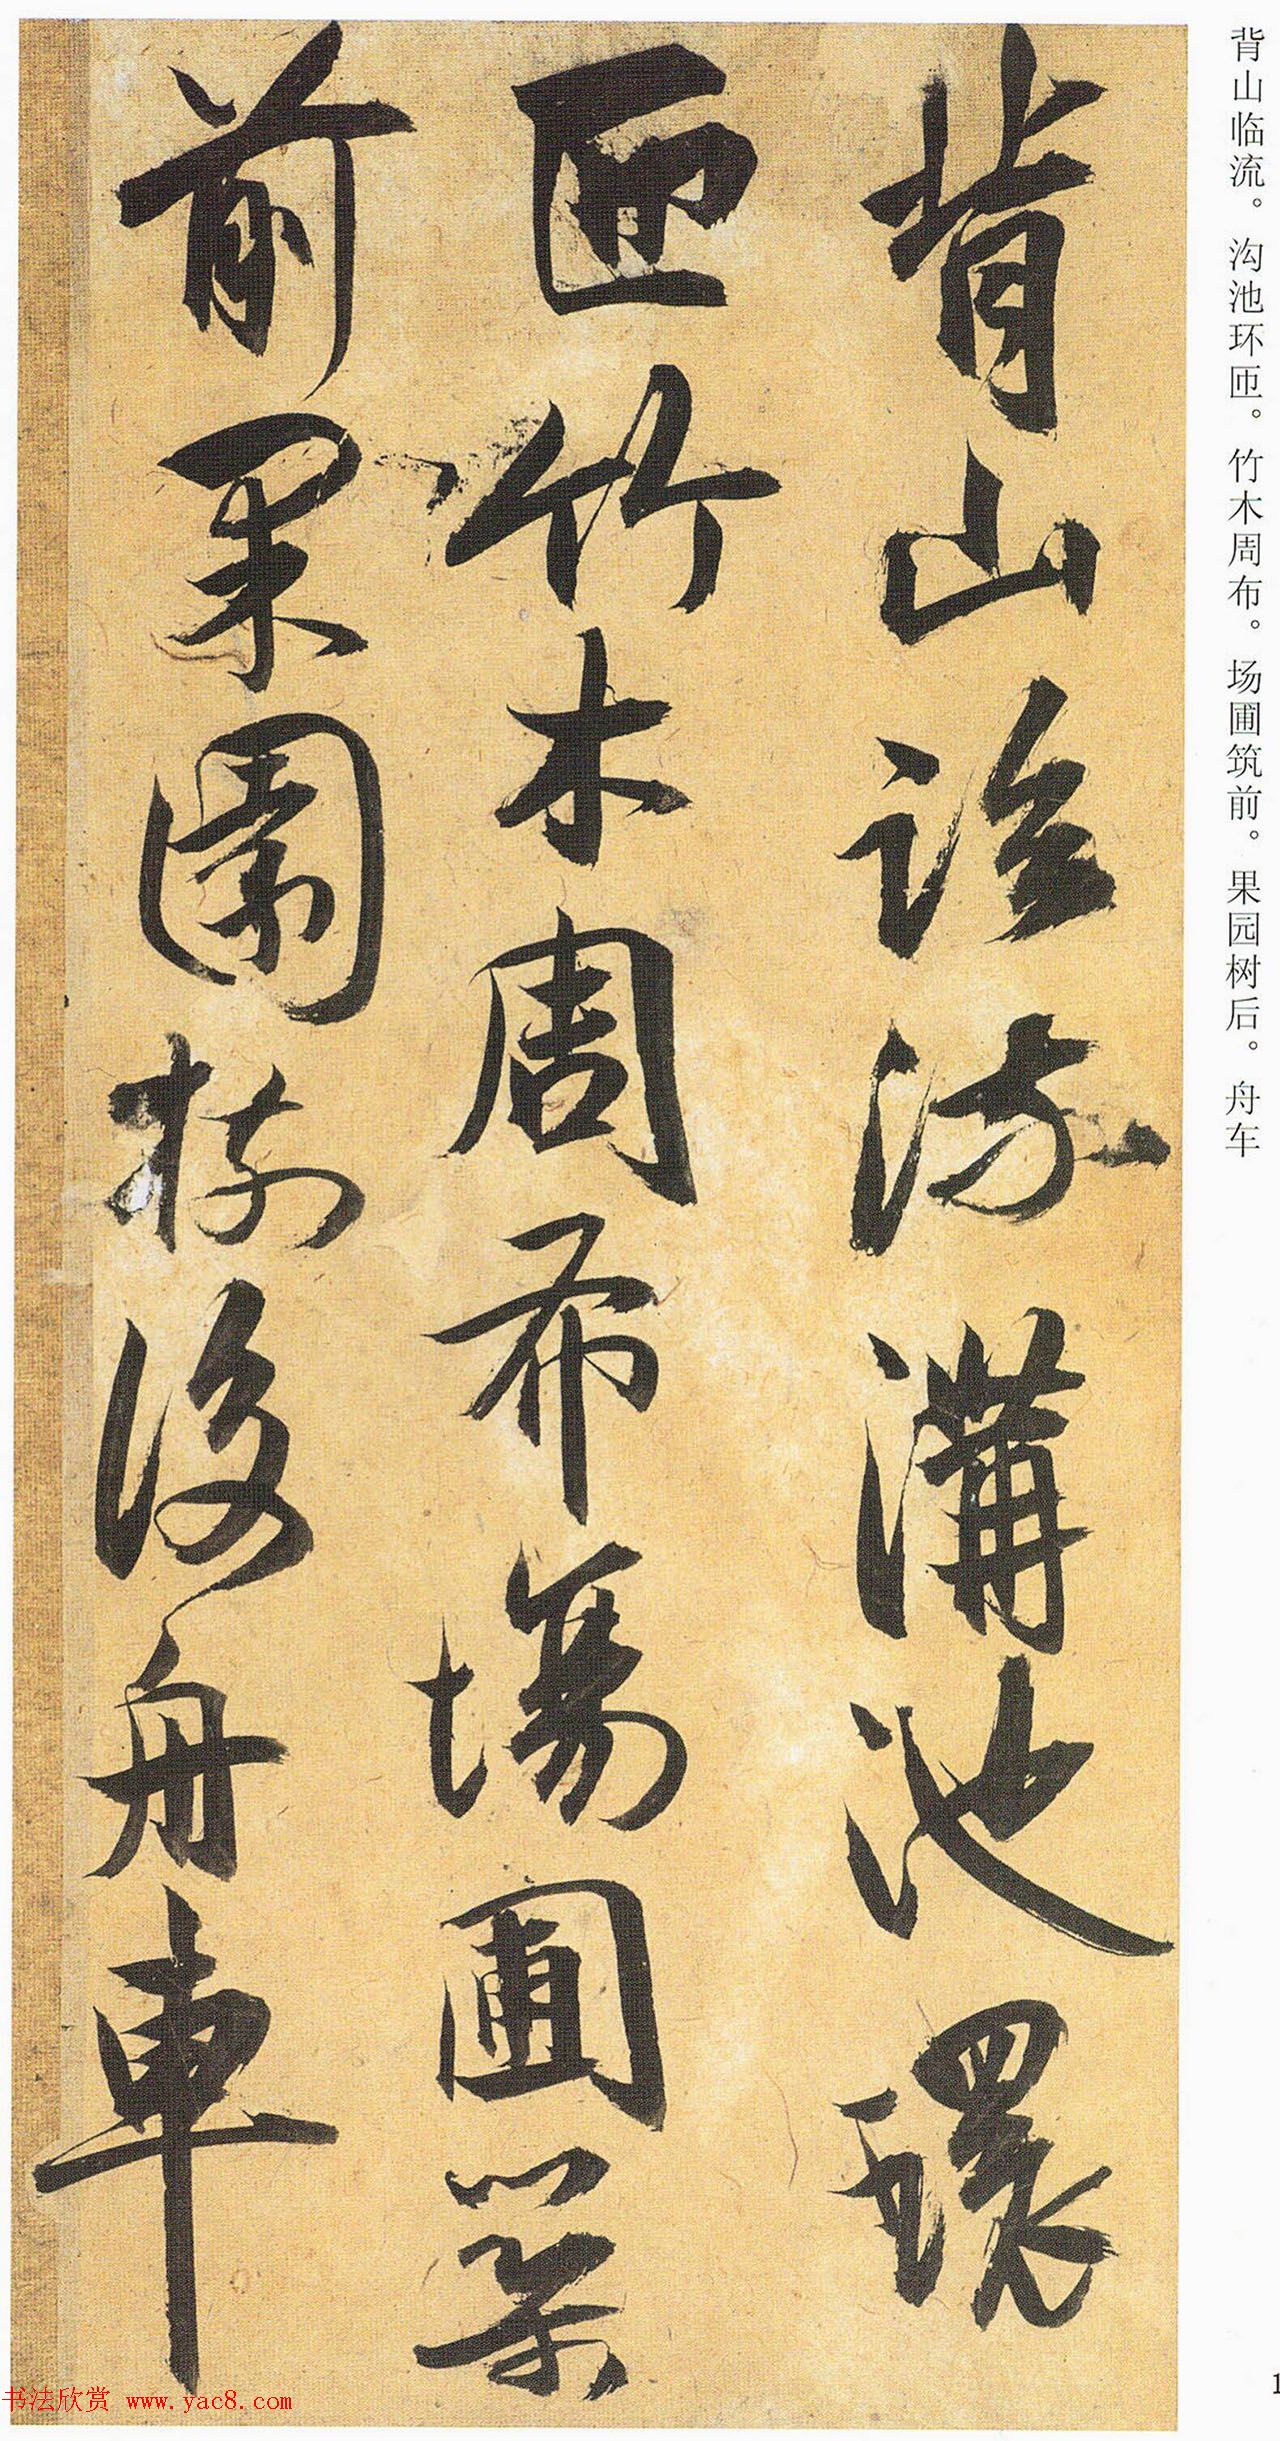 背山临流。沟池环匝。竹木周布。场圃筑前。果园树后。舟车
背山臨流溝池環
匝竹木周布場圃築
前果園樹後舟車
书法欣赏 www.yac8.com
1